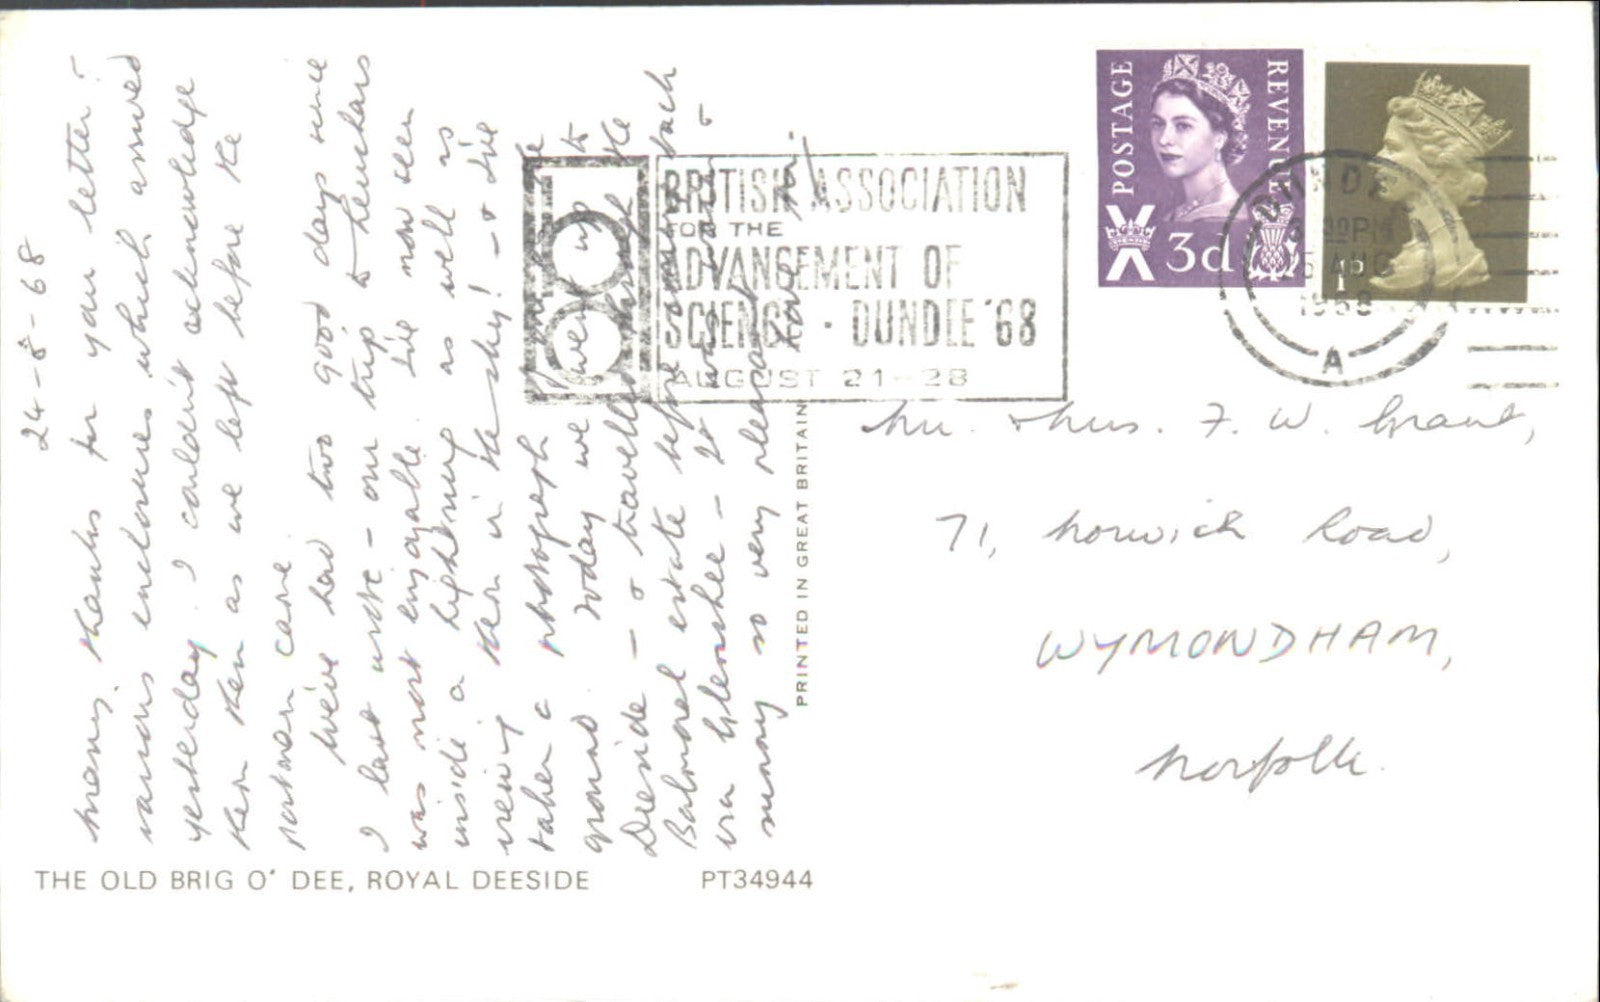 24-8-68
Many thanks for your letter &
various enclosures which arrived
yesterday. I couldn't acknowledge
then as we left before the
postman came.
We've had two good days since
I last wrote - our trip to
was most enjoyable. I've now seen
inside a lightning as well as
viewing them in the sky! - & I've
taken a photograph
ground. Today we went up to
Deeside - & travelled through the
Balmoral estate before coming back
via Glenshee - It was warm &
sunny so very pleasant
Love
THE OLD BRIG O' DEE, ROYAL DEESIDE
PT34944
PRINTED IN GREAT BRITAIN
BRITISH ASSOCIATION
FOR THE
ADVANCEMENT OF
SCIENCE · DUNDEE '68
AUGUST 21-28
POSTAGE
REVENUE
3d
1D
DUNDEE
30PM
AUG
1968
A
Mr. & Mrs. F. W. Grant,
71, Norwich Road,
WYMONDHAM,
Norfolk.